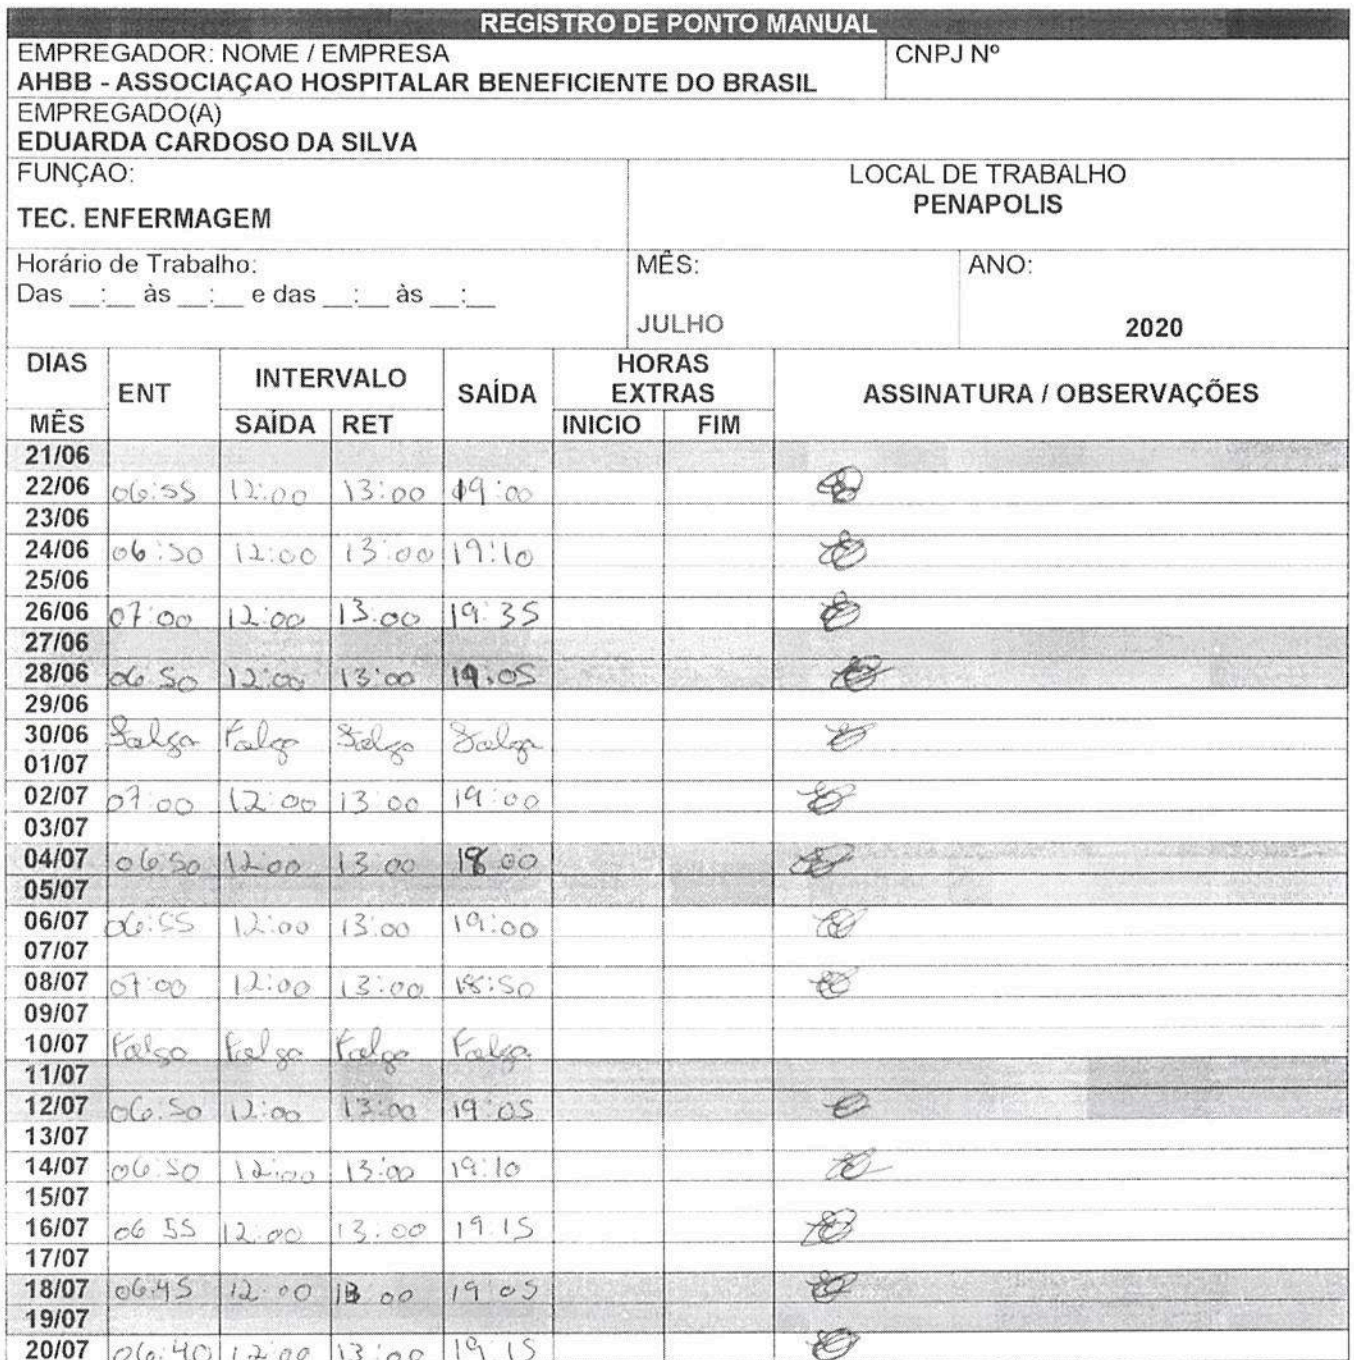 REGISTRO DE PONTO MANUAL
EMPREGADOR: NOME / EMPRESA CNPJ Nº
AHBB - ASSOCIAÇAO HOSPITALAR BENEFICIENTE DO BRASIL
EMPREGADO(A)
EDUARDA CARDOSO DA SILVA
FUNÇAO: LOCAL DE TRABALHO
TEC. ENFERMAGEM PENAPOLIS
Horário de Trabalho: MÊS: ANO:
Das __:__ às __:__ e das __:__ às __:__
JULHO 2020
DIAS HORAS
ENT INTERVALO SAÍDA EXTRAS ASSINATURA / OBSERVAÇÕES
MÊS SAÍDA RET INICIO FIM
21/06
22/06 06:55 12:00 13:00 19:00
23/06
24/06 06:50 12:00 13:00 19:10
25/06
26/06 07:00 12:00 13:00 19:35
27/06
28/06 06:50 12:00 13:00 19:05
29/06
30/06 Folga Folga Folga Folga
01/07
02/07 07:00 12:00 13:00 19:00
03/07
04/07 06:50 12:00 13:00 18:00
05/07
06/07 06:55 12:00 13:00 19:00
07/07
08/07 07:00 12:00 13:00 18:50
09/07
10/07 Folga Folga Folga Folga
11/07
12/07 06:50 12:00 13:00 19:05
13/07
14/07 06:50 12:00 13:00 19:10
15/07
16/07 06 55 12:00 13:00 19:15
17/07
18/07 06:45 12:00 13:00 19:05
19/07
20/07 06:40 12:00 13:00 19:15